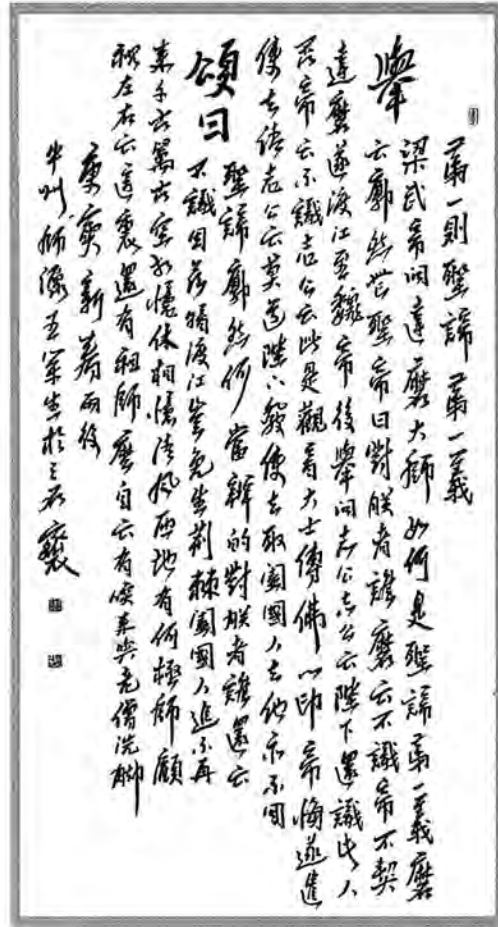 第一則聖諦第一義
舉
梁武帝問達磨大師如何是聖諦第一義磨
云廓然無聖帝曰對朕者誰磨云不識帝不契
達磨遂渡江至魏帝後舉問志公志公云陛下還識此人
否帝云不識志公云此是觀音大士傳佛心印帝悔遂遣
使去請志公云莫道陛下發使去取闔國人去他亦不回
頌曰
聖諦廓然何當辨的對朕者誰還云
不識因茲暗渡江豈免生荊棘闔國人追不再
來千古萬古空相憶休相憶清風匝地有何極師顧
視左右云這裏還有祖師麼自云有喚來與老僧洗腳
庚寅新春雨後